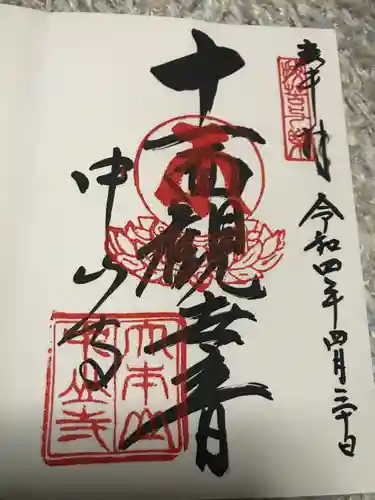 奉拝
令和四年四月三十日
十一面観世音
中山寺
大本山
中山寺